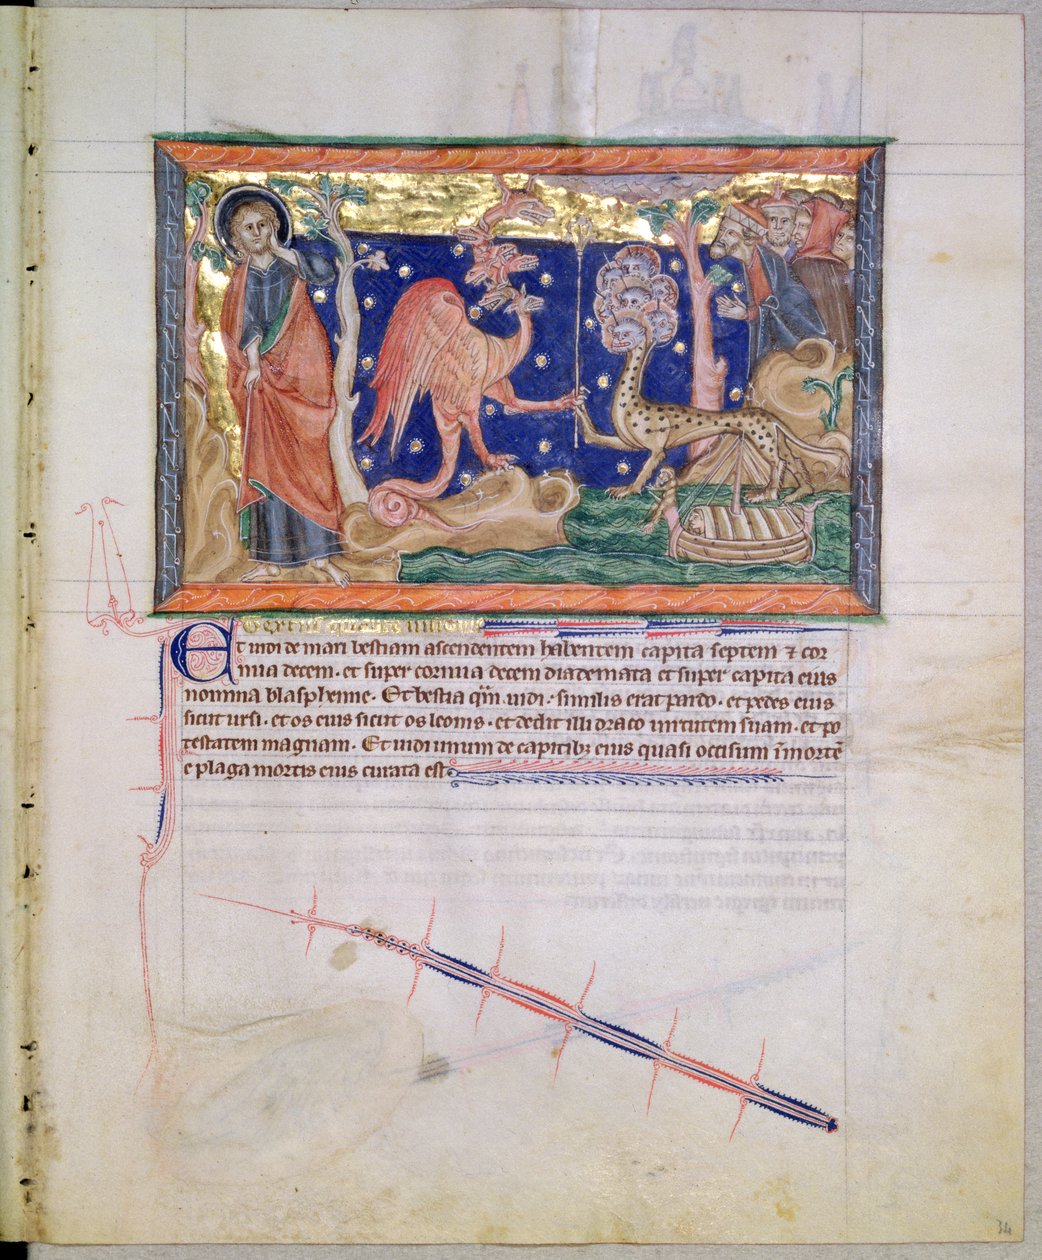 Et uidi de mari bestiam ascendentem habentem capita septem ⁊ cor
nua decem . et super cornua decem diademata et super capita eius
nomina blasphemie . Et bestia quam uidi . similis erat pardo . et pedes eius
sicut ursi . et os eius sicut os leonis . et dedit illi draco uirtutem suam . et po
testatem magnam . Et uidi unum de capitibꝫ eius quasi occisum ī mortē
e plaga mortis eius curata est
34